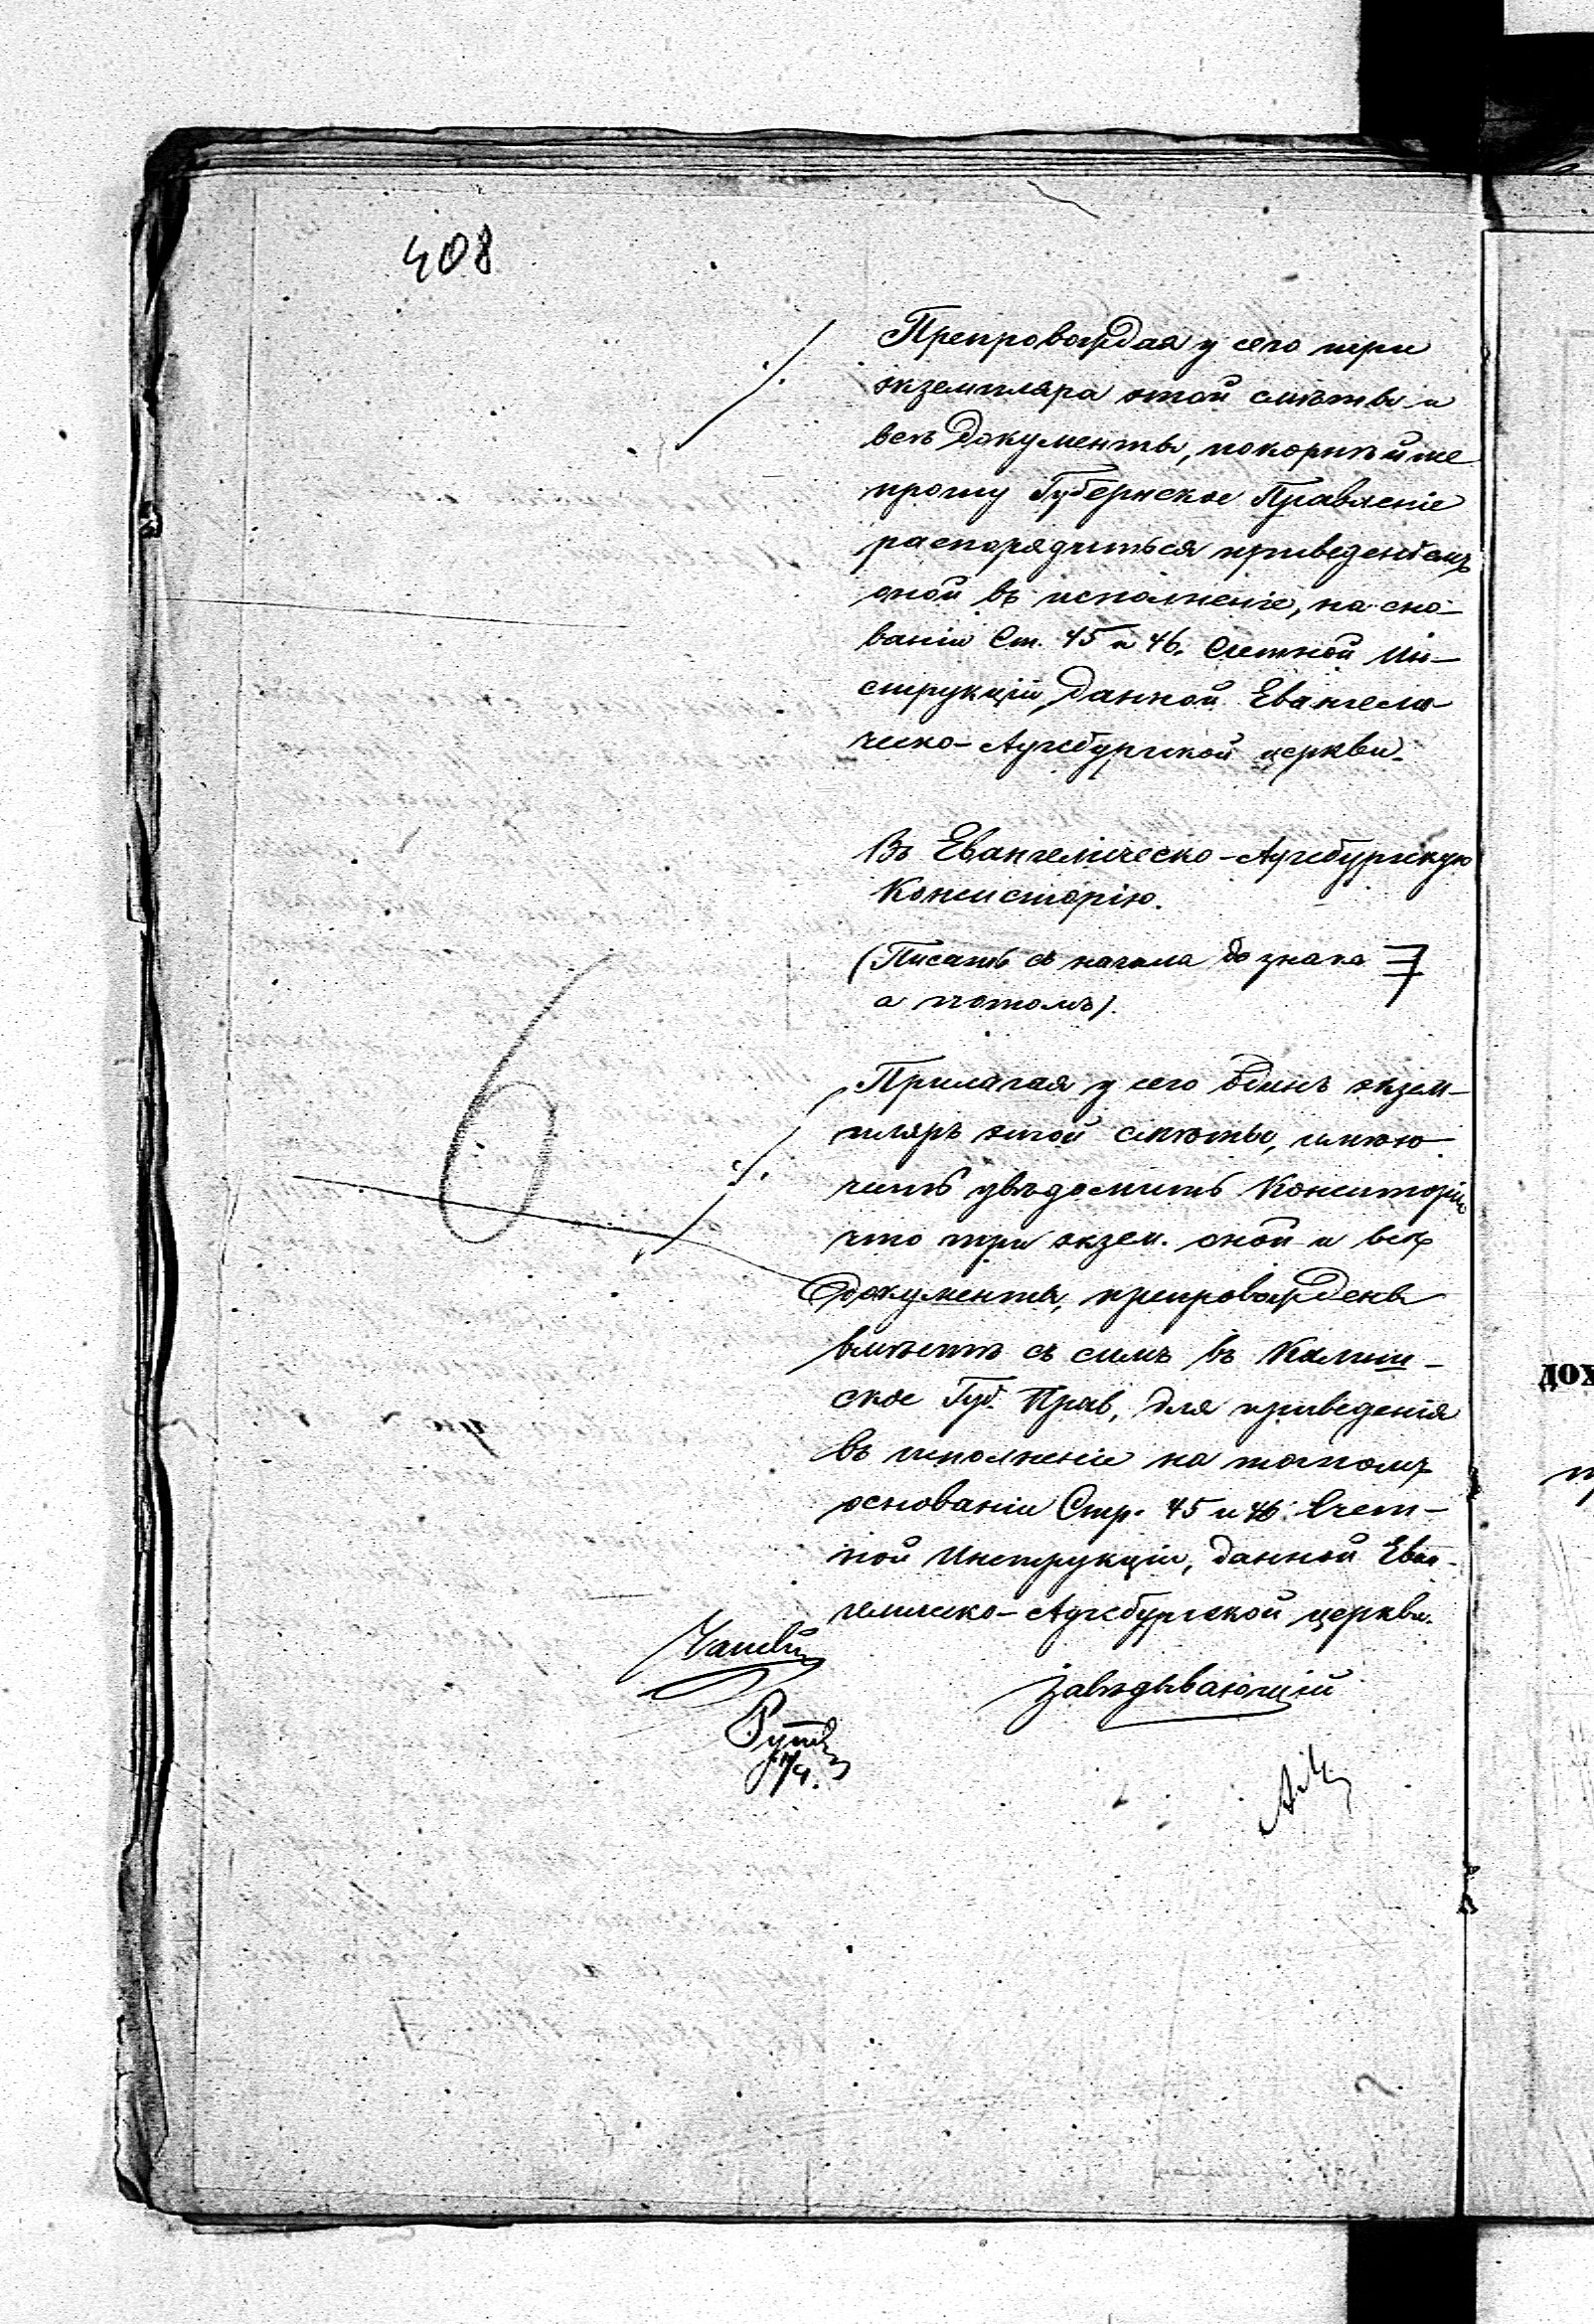 408
Препровождая у сего три
экземпляра этой смѣты и
всѣ документы, покорнѣйше
прошу Губернское Правленіе
распорядиться приведеніемъ
оной въ исполненіе, на сно-
ваніи Ст. 45 и 46. Счетной Ин-
струкціи, данной Евангели-
ческо-Аугсбургской церкви.
Въ Евангелическо-Аугсбургскую
Консисторію.
(Писать съ начала до знака
а потомъ).
Прилагая у сего одинъ экзем-
пляръ этой смѣты, имѣю
честь увѣдомить Консисторію
что три экзем. оной и всѣ
документы, препровождены
вмѣстѣ съ симъ въ Калиш-
ское Губ. Прав, для приведенія
въ исполненіе на точномъ
основаніи Стр. 45 и 46. Счет-
ной Инструкціи, данной Еван-
гелическо-Аугсбургской церкви.
Завѣдывающій
ДОХ